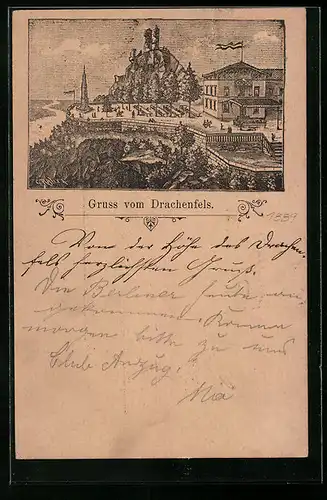 Gruss vom Drachenfels.
1889
Von der Höhe des Drachen-
fels herzlichsten Gruß.
Die Berliner heute an-
gekommen. Komm
morgen bitte zu uns
Club Anzug.